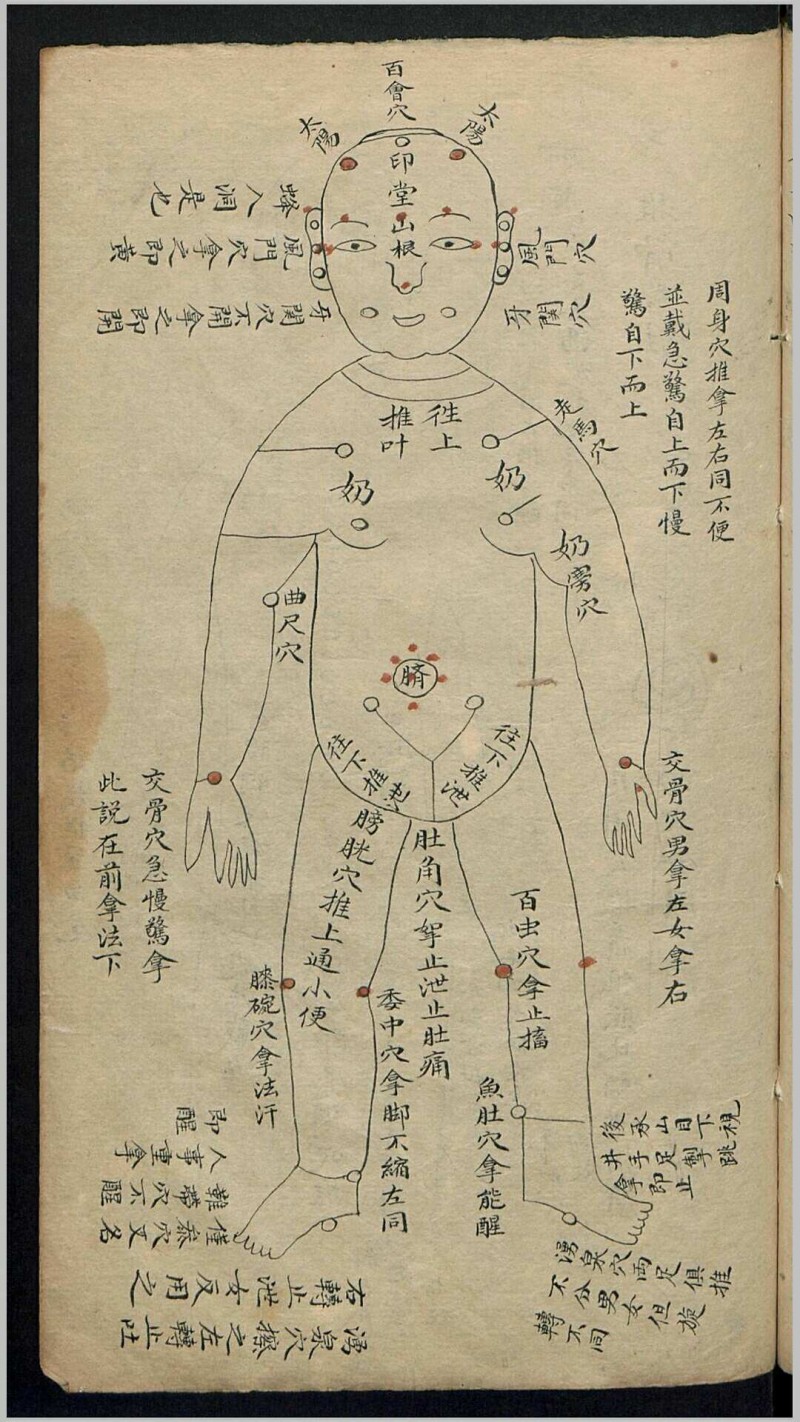 百會穴
太陽
太陽
印堂
山根
蜂入洞是也
風門穴拿之即黃
牙關穴不開拿之即開
風門穴
牙關穴
周身穴推拿左右同不便
並戴急驚自上而下慢
驚自下而上
走馬穴
往上
推吐
奶
奶
奶旁穴
曲尺穴
臍
往下推泄
往下推泄
膀胱穴推上通小便
肚角穴拏止泄止肚痛
百虫穴拿止搐
交骨穴男拿左女拿右
交骨穴急慢驚拿
此説在前拿法下
膝碗穴拿法汗
委中穴拿脚不縮左同
魚肚穴拿能醒
後承山目下視
井手足掣跳
拿即止
僕參穴又名
鞋帶穴不醒
人事重拿
即醒
湧泉穴擦之左轉止吐
右轉止泄女反用之
湧泉穴兩足俱推
不分男女但旋
轉不同